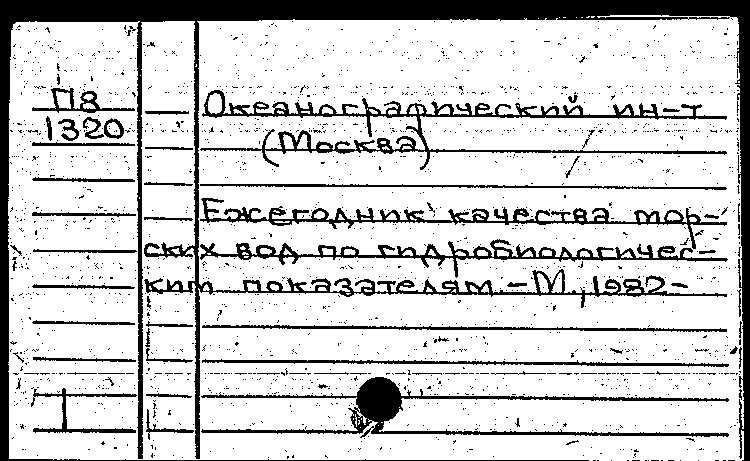 П8
1320
Океанографический ин-т
(Москва)
Ежегодник качества мор-
ских вод по гидробиологичес-
ким показателям. - М., 1982-
1